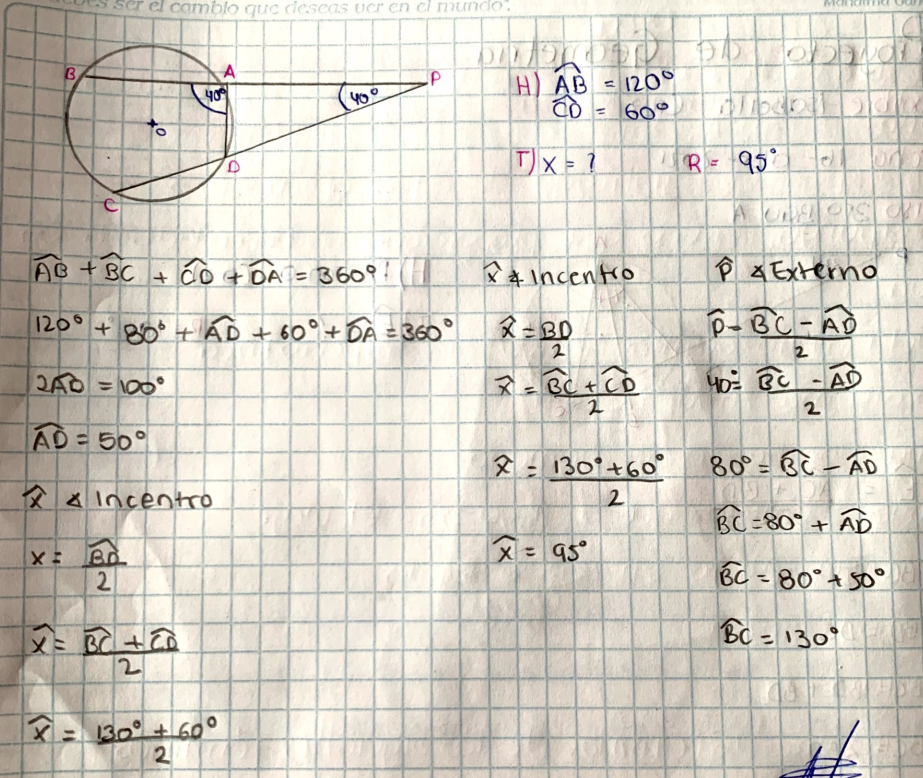 ser el cambio que deseas ver en el mundo".
B
A
P
40°
40°
O
D
C
H) A͡B = 120°
C͡D = 60°
T) X = ?
R = 95°
A͡B + B͡C + C͡D + D͡A = 360°
120° + 80° + A͡D + 60° + D͡A = 360°
2A͡D = 100°
A͡D = 50°
x̂ ∡ Incentro
x = B͡D/2
x̂ = B͡C + C͡D/2
x̂ = 130° + 60°/2
x̂ ∡ Incentro
x̂ = BD/2
x̂ = B͡C + C͡D/2
x̂ = 130° + 60°/2
x̂ = 95°
P̂ ∡ Externo
P̂ = B͡C - A͡D/2
40° = B͡C - A͡D/2
80° = B͡C - A͡D
B͡C = 80° + A͡D
B͡C = 80° + 50°
B͡C = 130°